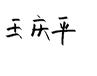 王庆平